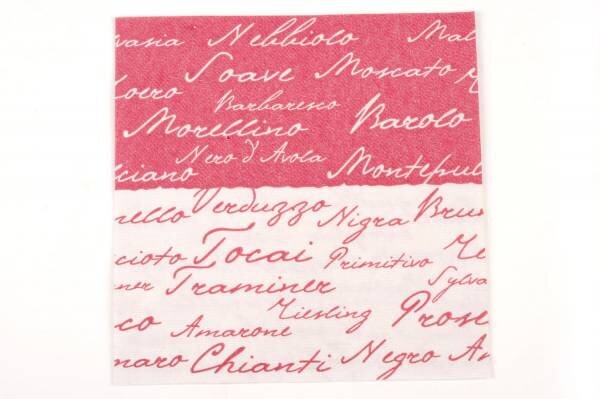 vasia Nebbiolo Mal
Soave Moscato
oero Barbaresco
Morellino Barolo
Nero d'Avola
lciano Montepul
nello Verduzzo Nigra Brun
cioto Tocai Primitivo
ner Traminer Sylva
co Amarone Riesling Prose
maro Chianti Negro Am